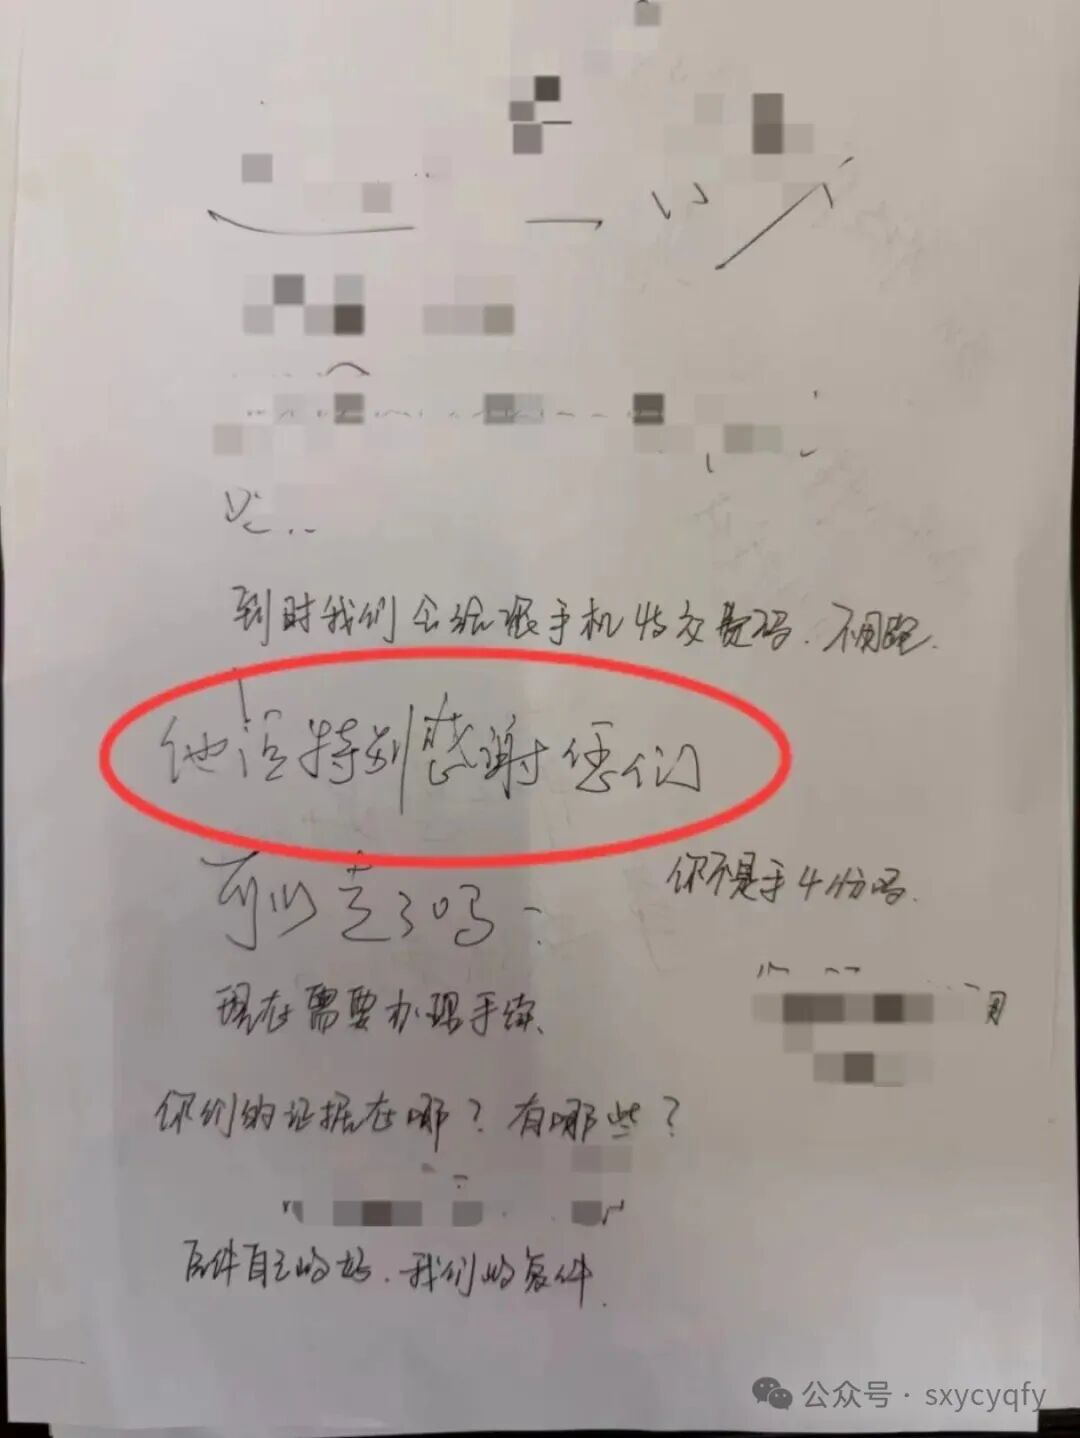 到时我们会给您手机发交费码.不用跑.
他说特别感谢您们
可以走了吗?
你不是手4份吗.
现在需要办理手续、
你们的证据在哪?有哪些?
原件自己收好.我们收复件.
公众号·sxycyqfy